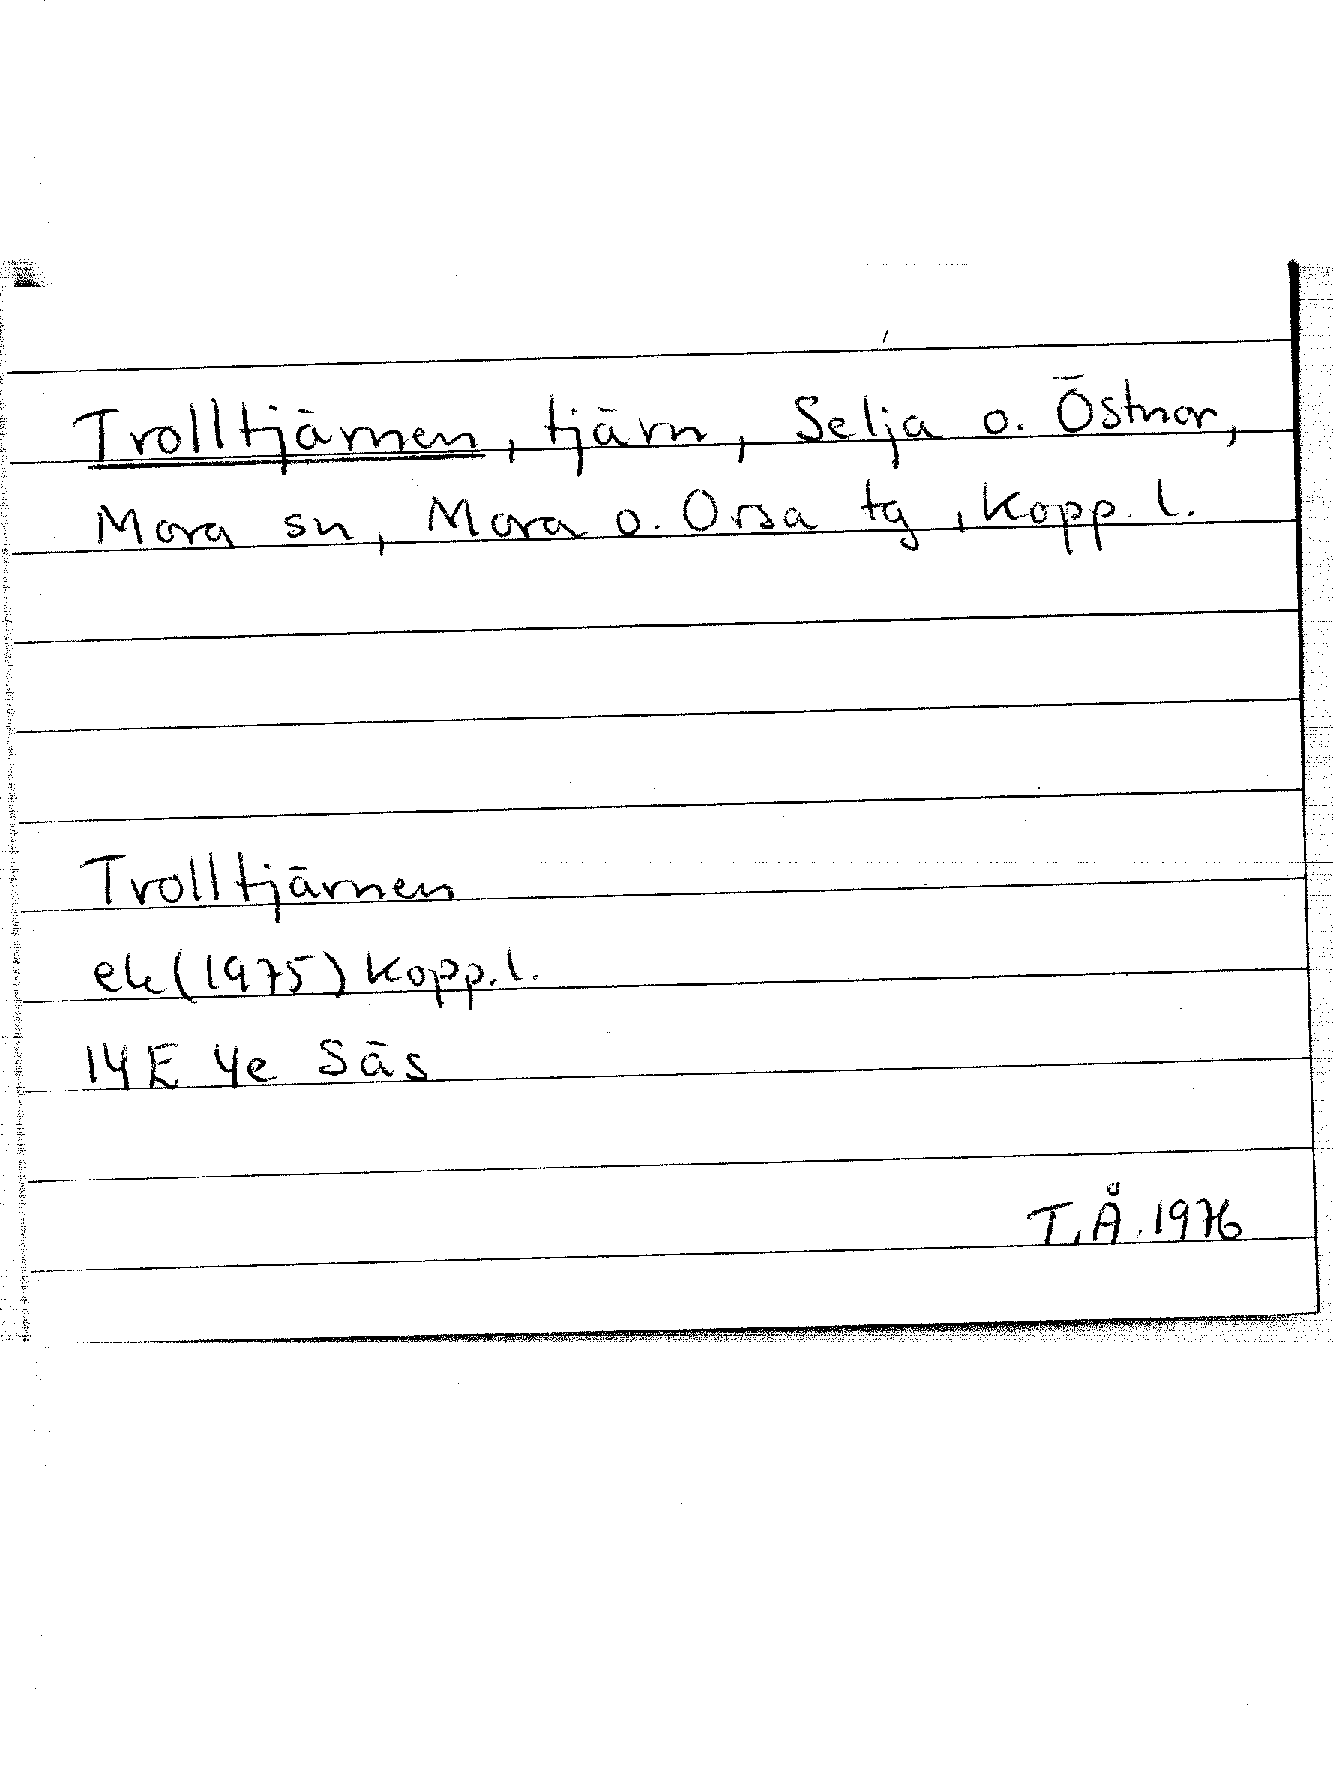 Trolltjärnen, tjärn, Selja o. Östnor,
Mora sn, Mora o. Orsa tg, Kopp. l.
Trolltjärnen
ek (1975) Kopp. l.
14E 4e Säs
T.Å. 1976